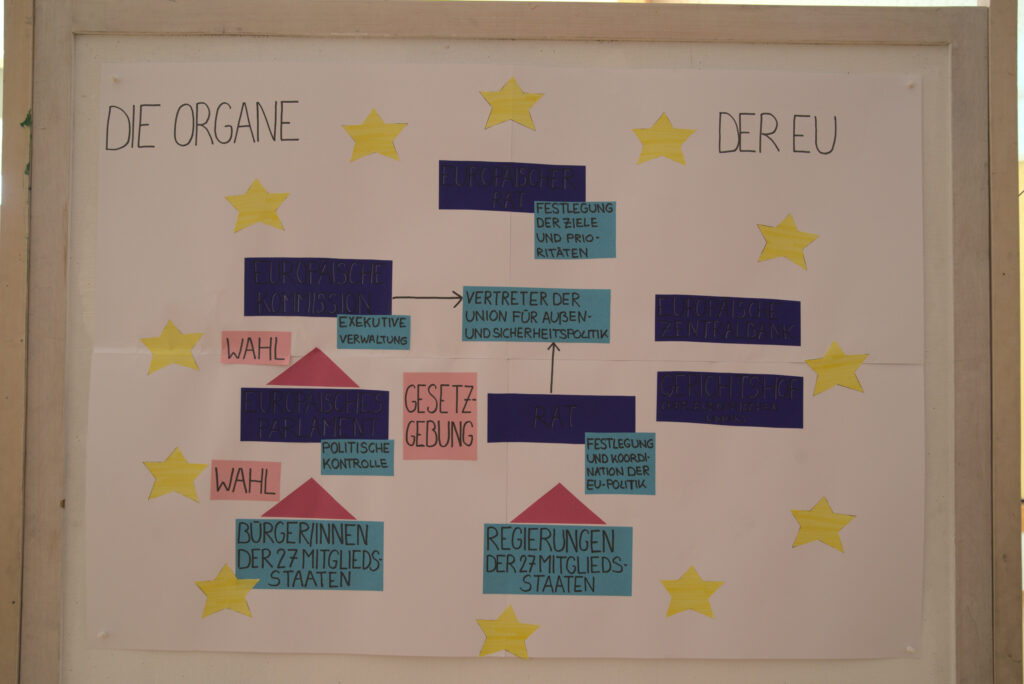 DIE ORGANE
DER EU
EUROPÄISCHER
RAT
FESTLEGUNG
DER ZIELE
UND PRIO-
RITÄTEN
EUROPÄISCHE
KOMMISSION
EXEKUTIVE
VERWALTUNG
VERTRETER DER
UNION FÜR AUßEN-
UND SICHERHEITSPOLITIK
EUROPÄISCHE
ZENTRALBANK
WAHL
EUROPÄISCHES
PARLAMENT
POLITISCHE
KONTROLLE
GESETZ-
GEBUNG
RAT
FESTLEGUNG
UND KOORDI-
NATION DER
EU-POLITIK
GERICHTSHOF
WAHL
BÜRGER/INNEN
DER 27 MITGLIEDS-
STAATEN
REGIERUNGEN
DER 27 MITGLIEDS-
STAATEN